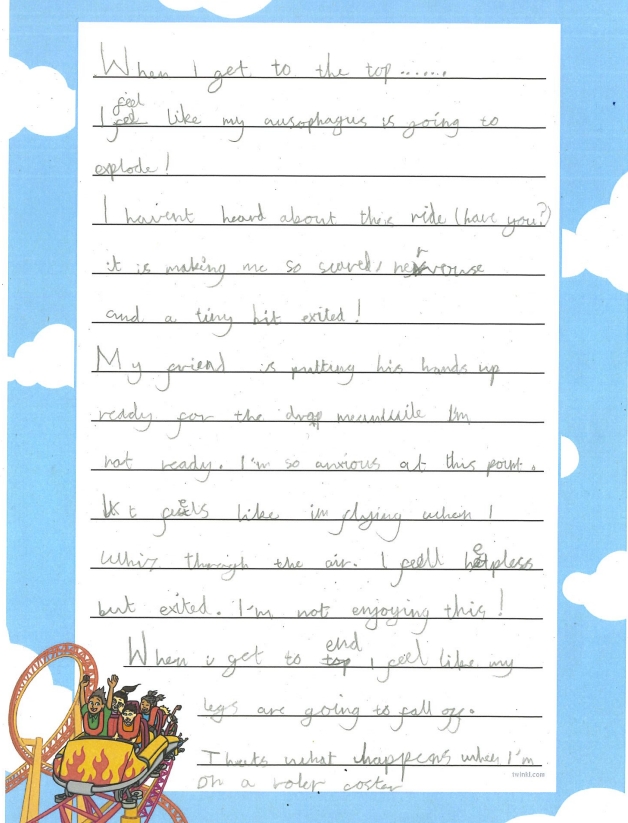 When I get to the top.......
feel
I feel like my ausophagus is going to
explode!
I havent heard about this ride (have you?)
it is making me so scared, nervouse
and a tiny bit exited!
My friend is putting his hands up
ready for the drop meanwile I'm
not ready. I'm so anxious at this point.
It feels like im flying when I
whiz through the air. I feell helpless
but exited. I'm not enjoying this!
end
When i get to top I feel like my
legs are going to fall off.
Thats what happens when I'm
on a roler coster
twinkl.com